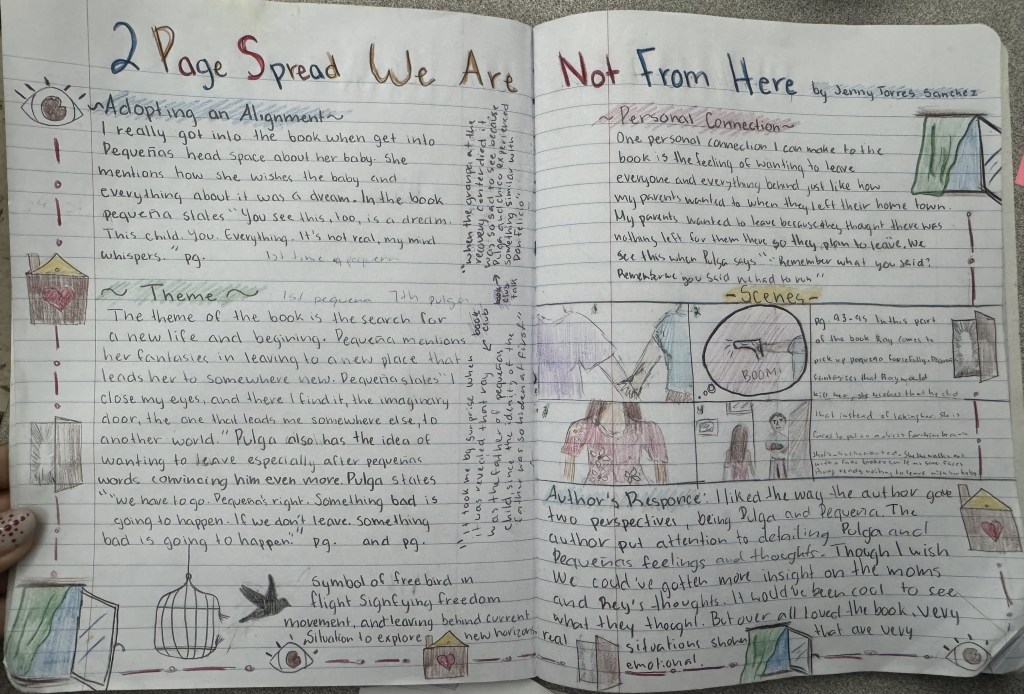 2 Page Spread We Are Not From Here by Jenny Torres Sanchez
~Adopting an Alignment~
I really got into the book when get into
Pequeñas head space about her baby. She
mentions how she wishes the baby and
everything about it was a dream. In the book
pequeña states "You see this, too, is a dream.
This child. You. Everything. It's not real, my mind
whispers." pg.
1st time a pequeña
~ Theme ~
1st pequena 7th pulga
The theme of the book is the search for
a new life and begining. Pequeña mentions
her fantasies in leaving to a new place that
leads her to somewhere new. Pequeña states "I
close my eyes, and there I find it, the imaginary
door, the one that leads me somewhere else, to
another world." Pulga also has the idea of
wanting to leave especially after pequeñas
words convincing him even more. Pulga states
"we have to go. Pequeña's right. Something bad is
going to happen. If we don't leave. Something
bad is going to happen." pg. and pg.
"When the grandpa at the
recovery center died it
was so sad to see because
Pulga and Chico experienced
something similar with
Don Felicio".
book
club
talk
book
club
"It took me by surprise when
it was revealed that ray
was the father of pequeñas
child since the idenity of the
father was so hiden at first."
Symbol of free bird in
flight Signfying freedom
movement, and leaving behind current
Situation to explore new horizons
~Personal Connection~
One personal connection I can make to the
book is the feeling of wanting to leave
everyone and everything behind just like how
my parents wanted to when they left their home town.
My parents wanted to leave because they thought there was
nothing left for them there so they plan to leave. We
see this when Pulga says "Remember what you said?
Remember you said we had to run"
-Scenes-
1
2
BOOM!
4
pg. 93-95 In this part
of the book Ray comes to
pick up pequeña forcefully.
fantasises that Ray would
kill her, she wishes that he did
that instead of taking her. She is
Author's Responce: I liked the way the author gave
two perspectives, being Pulga and Pequeña. The
author put attention to detailing Pulga and
Pequeñas feelings and thoughts. Though I wish
We could've gotten more insight on the moms
and Rey's thoughts. It would've been cool to see
what they thought. But over all loved the book. Very
real situations shown that are very
emotional.